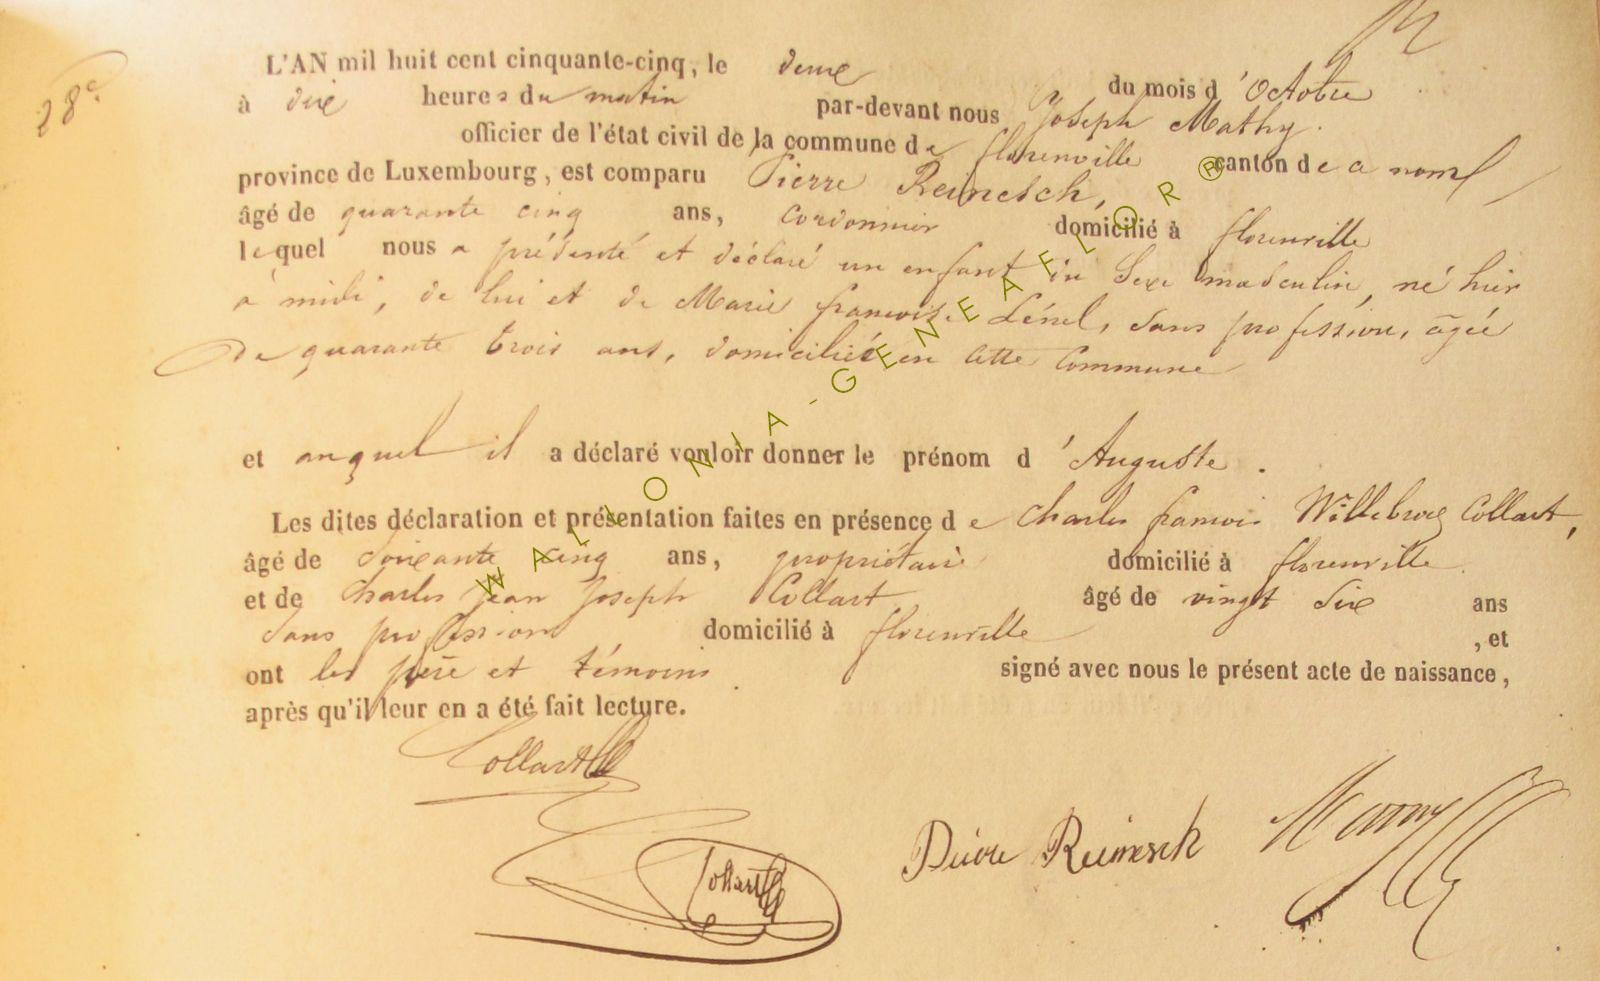 28e
L'AN mil huit cent cinquante-cinq, le deux du mois d'Octobre
à dix heures du matin par-devant nous Joseph Mathy
officier de l'état civil de la commune de florenville canton de ce nom
province de Luxembourg, est comparu Pierre Reinesch,
âgé de quarante cinq ans, cordonnier domicilié à florenville
lequel nous a présenté et déclaré un enfant du Sexe masculin, né hier
à midi, de lui et de Marie françoise Lénel, sans profession, âgée
de quarante trois ans, domiciliés en cette Commune
et auquel il a déclaré vouloir donner le prénom d'Auguste.
Les dites déclaration et présentation faites en présence de Charles françois Willebrod Collart,
âgé de soixante cinq ans, propriétaire domicilié à florenville
et de Charles Jean Joseph Collart âgé de vingt six ans
sans profession domicilié à florenville , et
ont les père et témoins signé avec nous le présent acte de naissance,
après qu'il leur en a été fait lecture.
Collart
Collart
Pierre Reinesch
WALLONIA-GENEAFLOR®